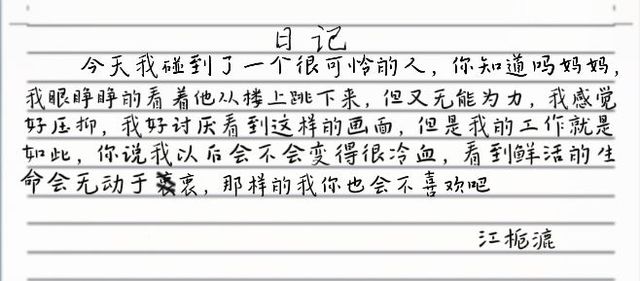 日记
今天我碰到了一个很可怜的人，你知道吗妈妈，
我眼睁睁的看着他从楼上跳下来，但又无能为力，我感觉
好压抑，我好讨厌看到这样的画面，但是我的工作就是
如此，你说我以后会不会变得很冷血，看到鲜活的生
命会无动于衷，那样的我你也会不喜欢吧
江栀漉